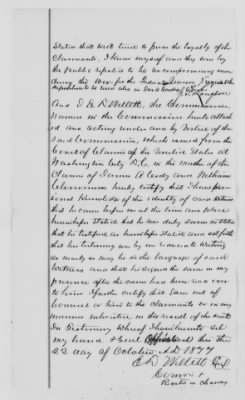 States that will tend to prove the loyalty of the
Claimants. I know myself and they were by
the Public reputed to be uncompromising men
during the War for the Union
And I E D Willett, the Commissioner
named in the Commission hereto attach
ed and acting under and by virtue of the
said Commission, which issued from the
Court of Claims of the United States at
Washington City D.C. in the matter of the
Claim of A Cody and William
Clemmons hereby certify that I have per
sonal knowledge of the identity of said witness
that he came before me at the time and place
hereinbefore stated that he was duly sworn as stated
that he testified as hereinbefore stated and set forth
that his testimony was by me reduced to writing
as nearly as may be in the language of said
Witness and that he signed the same in my
presence after the same had been read over
to him I further certify that I am not of
Counsel or kin to the claimants or in any
manner interested in the result of the suit
In Testimony Whereof I hereunto set
my hand &amp; seal this the
22 day of October A.D. 1877
E D Willett
Commr &amp;
in chancy